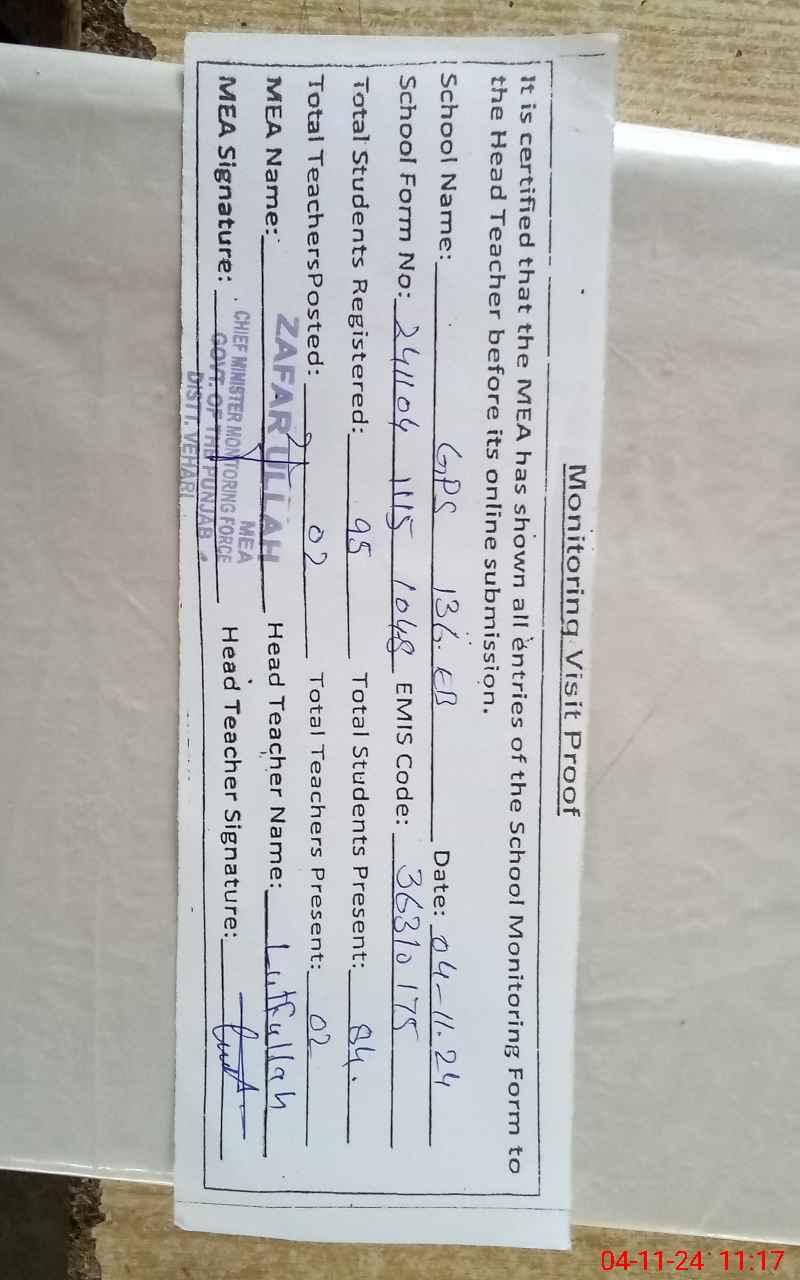 Monitoring Visit Proof
It is certified that the MEA has shown all entries of the School Monitoring Form to
the Head Teacher before its online submission.
School Name: GPS 136. EB Date: 04-11.24
School Form No: 241104 1115 1048 EMIS Code: 36310175
Total Students Registered: 95 Total Students Present: 84.
Total TeachersPosted: 02 Total Teachers Present: 02
MEA Name: ZAFAR ULLAH Head Teacher Name: Lutfullah
MEA
CHIEF MINISTER MONITORING FORCE
MEA Signature: Head Teacher Signature:
GOVT. OF THE PUNJAB
DISTT. VEHARI
04-11-24 11:17